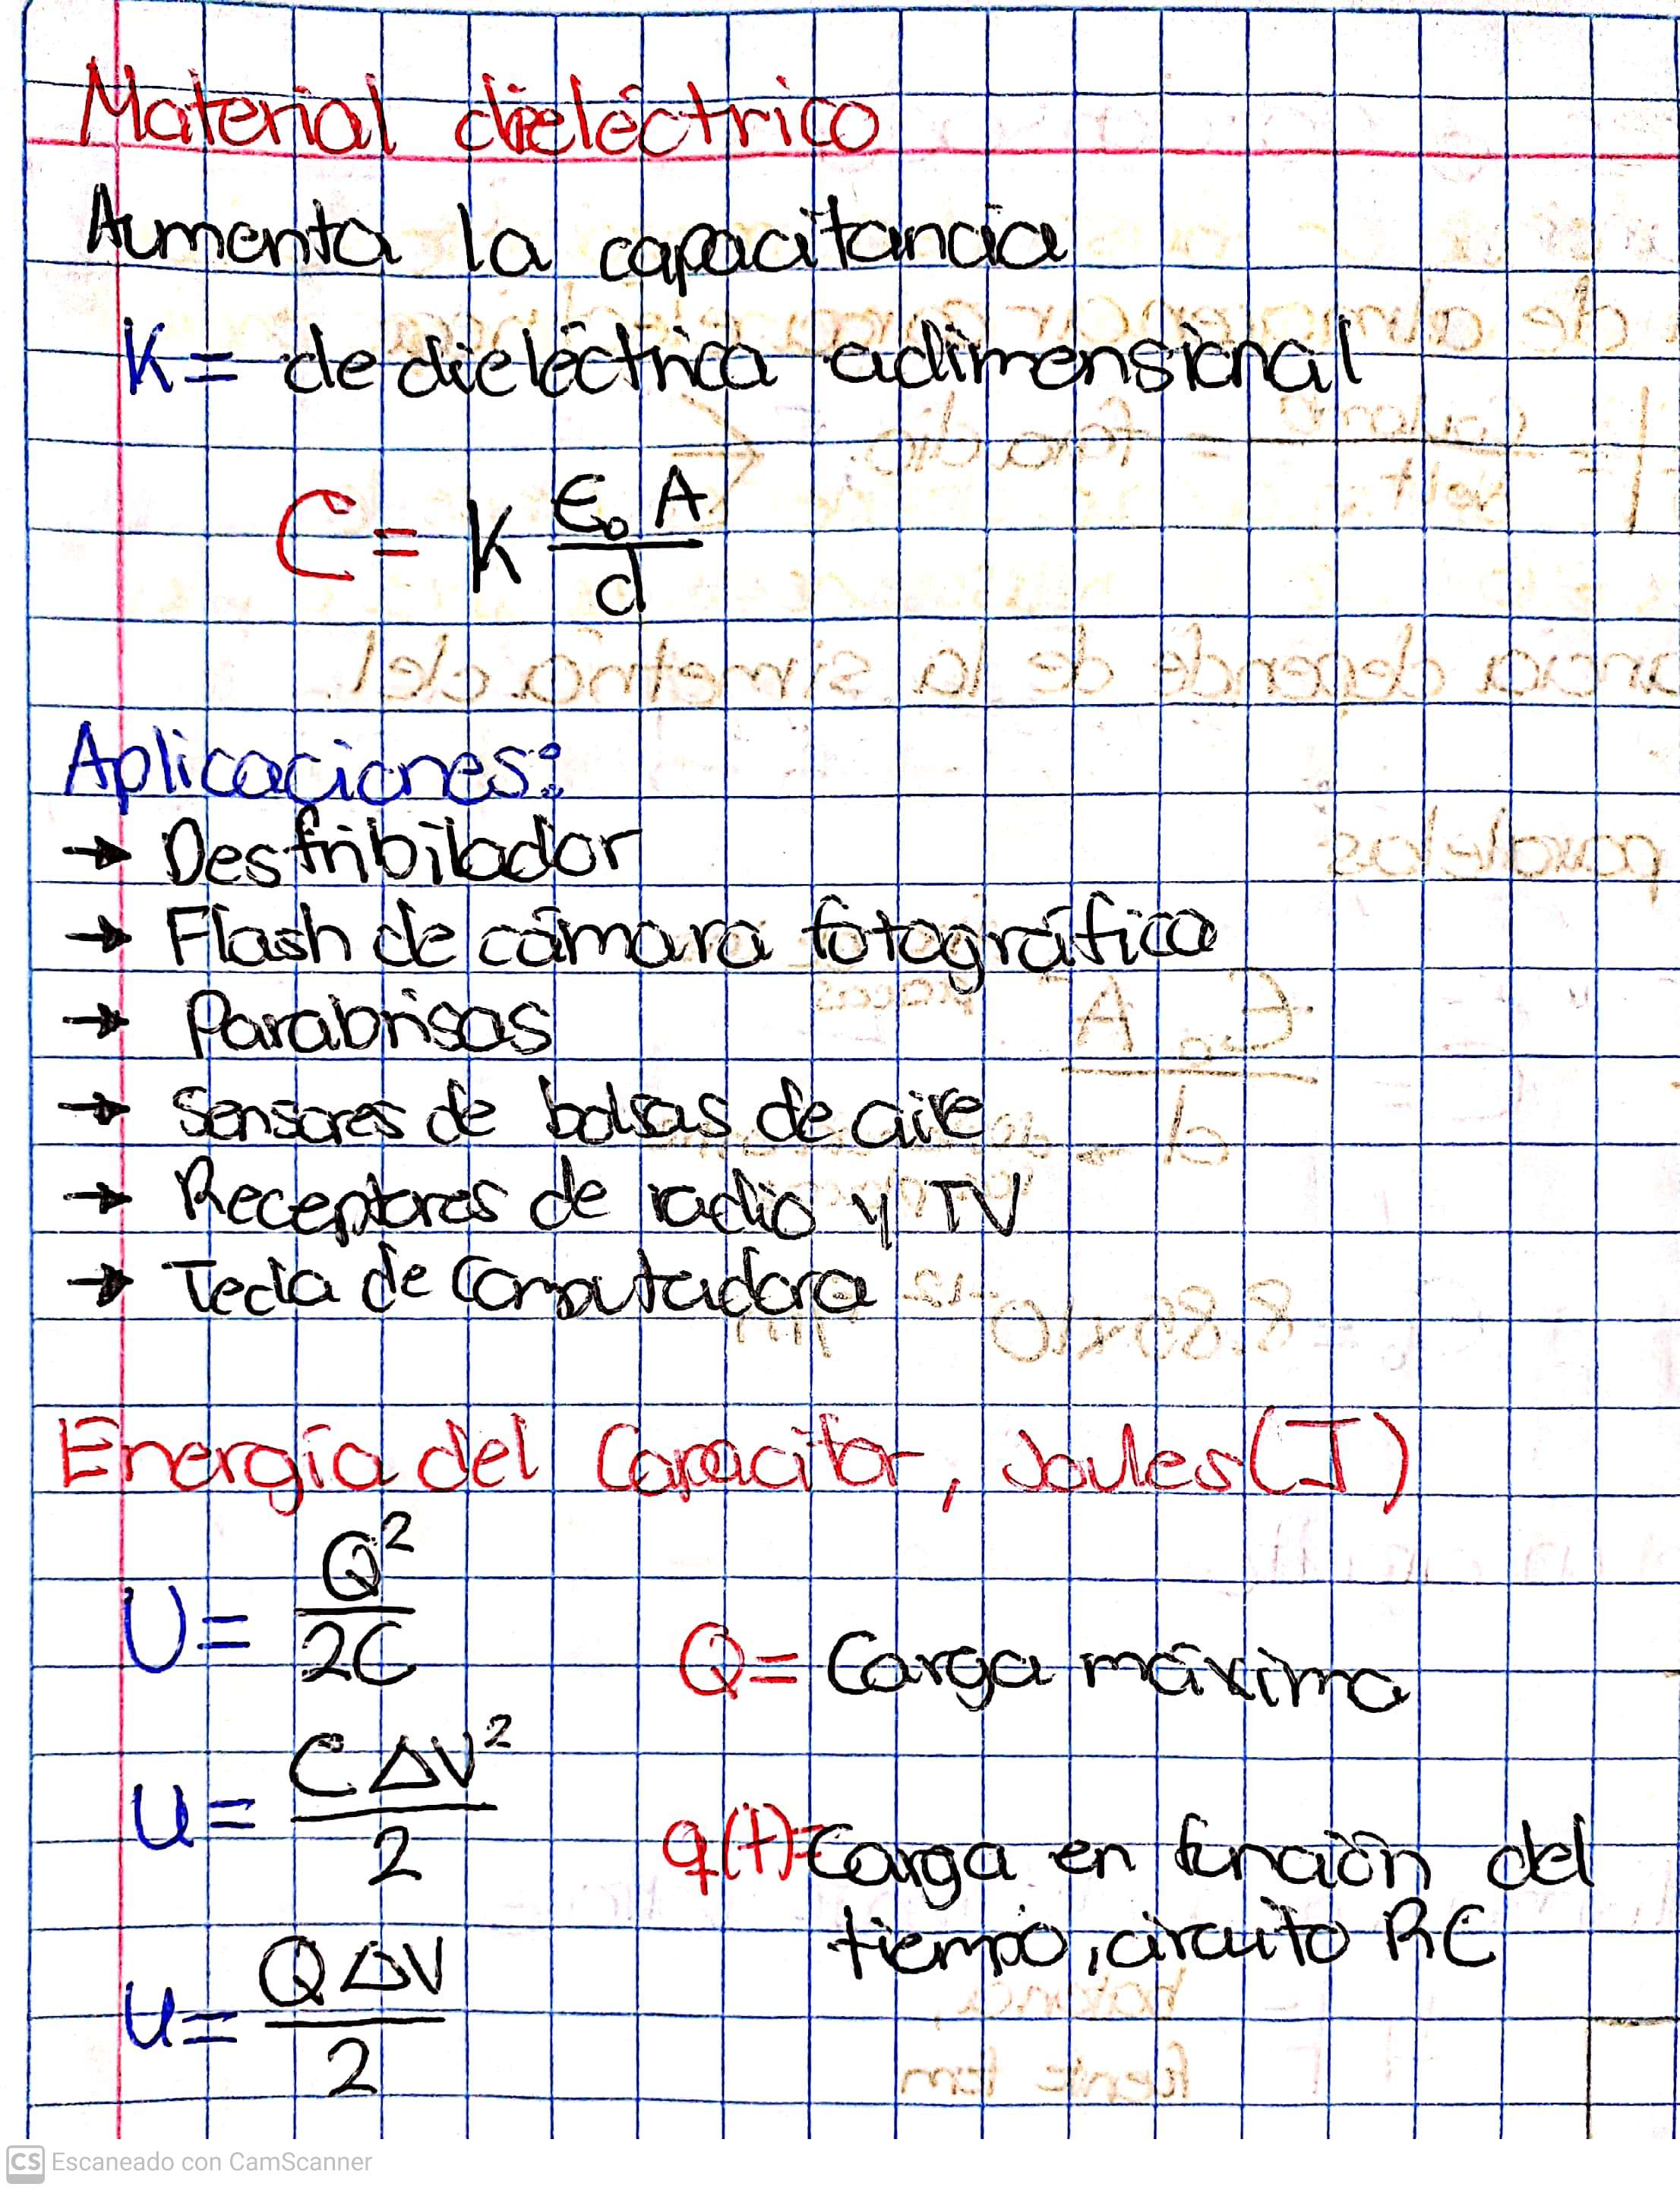 Material dieléctrico
Aumenta la capacitancia
K = de dieléctrica adimensional
C = K ε₀ A / d
Aplicaciones:
→ Desfribilador
→ Flash de cámara fotográfica
→ Parabrisas
→ Sensores de bolsas de aire
→ Receptores de radio y TV
→ Tecla de Computadora
Energía del Capacitor, Joules (J)
U = Q² / 2C
Q = Carga máxima
U = C ΔV² / 2
q(t) = Carga en función del
tiempo, circuito RC
U = Q ΔV / 2
CS Escaneado con CamScanner